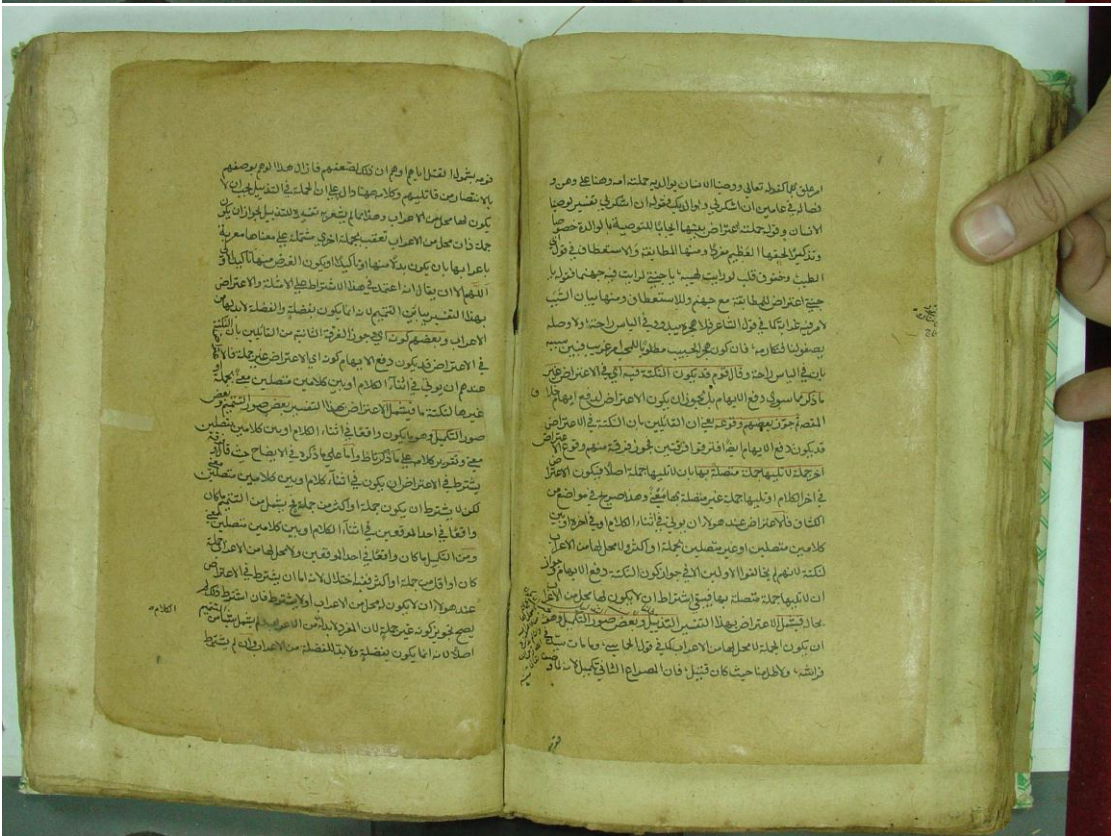 امر علق بهما كقوله تعالى ووصينا الانسان بوالديه حملته امه وهنا على وهن و
فصاله في عامين ان اشكر لي ولوالديك فقوله ان اشكر لي تفسير لوصينا
الانسان وقوله حملته اعتراض بينهما ايجابا للتوصية بالوالدة خصوصا
وتذكيرا لحقها العظيم مفردا ومنها المطابقة والاستعطاف في قول ابي
الطيب وخفوق قلب لو رايت لهيبه يا جنتي لرايت فيه جهنما فقوله يا
جنتي اعتراض للمطابقة مع جهنم وللاستعطاف ومنها بيان السبب
لامر فيه غرابة كما في قول الشاعر فلا هجره يبدو وفي الياس راحة ولا وصله
يصفو لنا فنكارمه فان كون هجر الحبيب مطلوبا للمحب امر غريب فبين سببه
بان في الياس راحة وقال قوم قد يكون النكتة فيه اي في الاعتراض غير
ما ذكر مما سوى دفع الايهام بل يجوز ان يكون الاعتراض لدفع ايهام خلاف
المقصود جوز بعضهم وقوعه يعني ان القائلين بان النكتة في الاعتراض
قد يكون دفع الايهام ايضا افترقوا فرقتين فجوز فرقة منهم وقوع الاعتراض
اخر جملة لا تليها جملة متصلة بها بان لا تليها جملة اصلا فيكون الاعتراض
في اخر الكلام او تليها جملة غير متصلة بها معنى وهذا صريح في مواضع من
الكشاف فالاعتراض عند هولاء ان يوتى في اثناء الكلام او في اخره او بين
كلامين متصلين او غير متصلين بجملة او اكثر لا محل لها من الاعراب
لنكتة لانهم لم يخالفوا الاولين الا في جواز كون النكتة دفع الايهام وجواز
ان لا تليها جملة متصلة بها فيبقى اشتراط ان لا يكون لها محل من الاعراب
بحاله فيشمل الاعتراض بهذا التفسير التذييل وبعض صور التكميل وهو
ان يكون الجملة لا محل لها من الاعراب كما في قول الحماسي وما مات سيد في
فراشه ولا طل منا حيث كان قتيل فان المصراع الثاني تكميل لانه لما وصف
قومه بشمول القتل اياهم اوهم ان ذلك لضعفهم فازال هذا الوهم بوصفهم
بالانتصار من قاتليهم وكلامه ههنا دال على ان الجملة في التذييل يجب ان لا
يكون لها محل من الاعراب وهذا مما لم يشعر به تفسيره للتذييل لجواز ان يكون
جملة ذات محل من الاعراب تعقب بجملة اخرى مشتملة على معناها معربة
باعرابها بان يكون بدلا منها او تاكيدا او يكون الغرض منها تاكيد الاولى
اللهم الا ان يقال انه اعتمد في هذا الاشتراط على الامثلة والاعتراض
بهذا التفسير يباين التتميم لانه انما يكون بفضلة والفضلة لا بد لها من
الاعراب وبعضهم كونه اي جوز الفرقة الثانية من القائلين بان النكتة
في الاعتراض قد يكون دفع الايهام كونه اي الاعتراض غير جملة فالاعتراض
عندهم ان يوتى في اثناء الكلام او بين كلامين متصلين معنى بجملة او
غيرها لنكتة ما فيشمل الاعتراض بهذا التفسير بعض صور التتميم وبعض
صور التكميل وهو ما يكون واقعا في اثناء الكلام او بين كلامين متصلين
معنى وتقرير كلامه على ما ذكر ظاهر واما على ما ذكره في الايضاح حيث قال فرقة
يشترط في الاعتراض ان يكون في اثناء كلام او بين كلامين متصلين معنى
لكن لا يشترط ان يكون جملة او اكثر من جملة فح يشمل من التتميم ما كان
واقعا في احد الموقعين في اثناء الكلام او بين كلامين متصلين معنى
ومن التكميل ما كان واقعا في احد الموقعين ولا محل لها من الاعراب جملة
كان او اقل من جملة او اكثر ففيه اختلال لانه اما ان يشترط في الاعتراض
عند هولاء ان لا يكون له محل من الاعراب او لا يشترط فان اشترط ذلك لم
الكلام
يصح تجويز كونه غير جملة لان المفرد لا بد له من الاعراب لم يشمل شيئا من التتميم
اصلا لانه انما يكون بفضلة ولا بد للفضلة من الاعراب وان لم يشترط